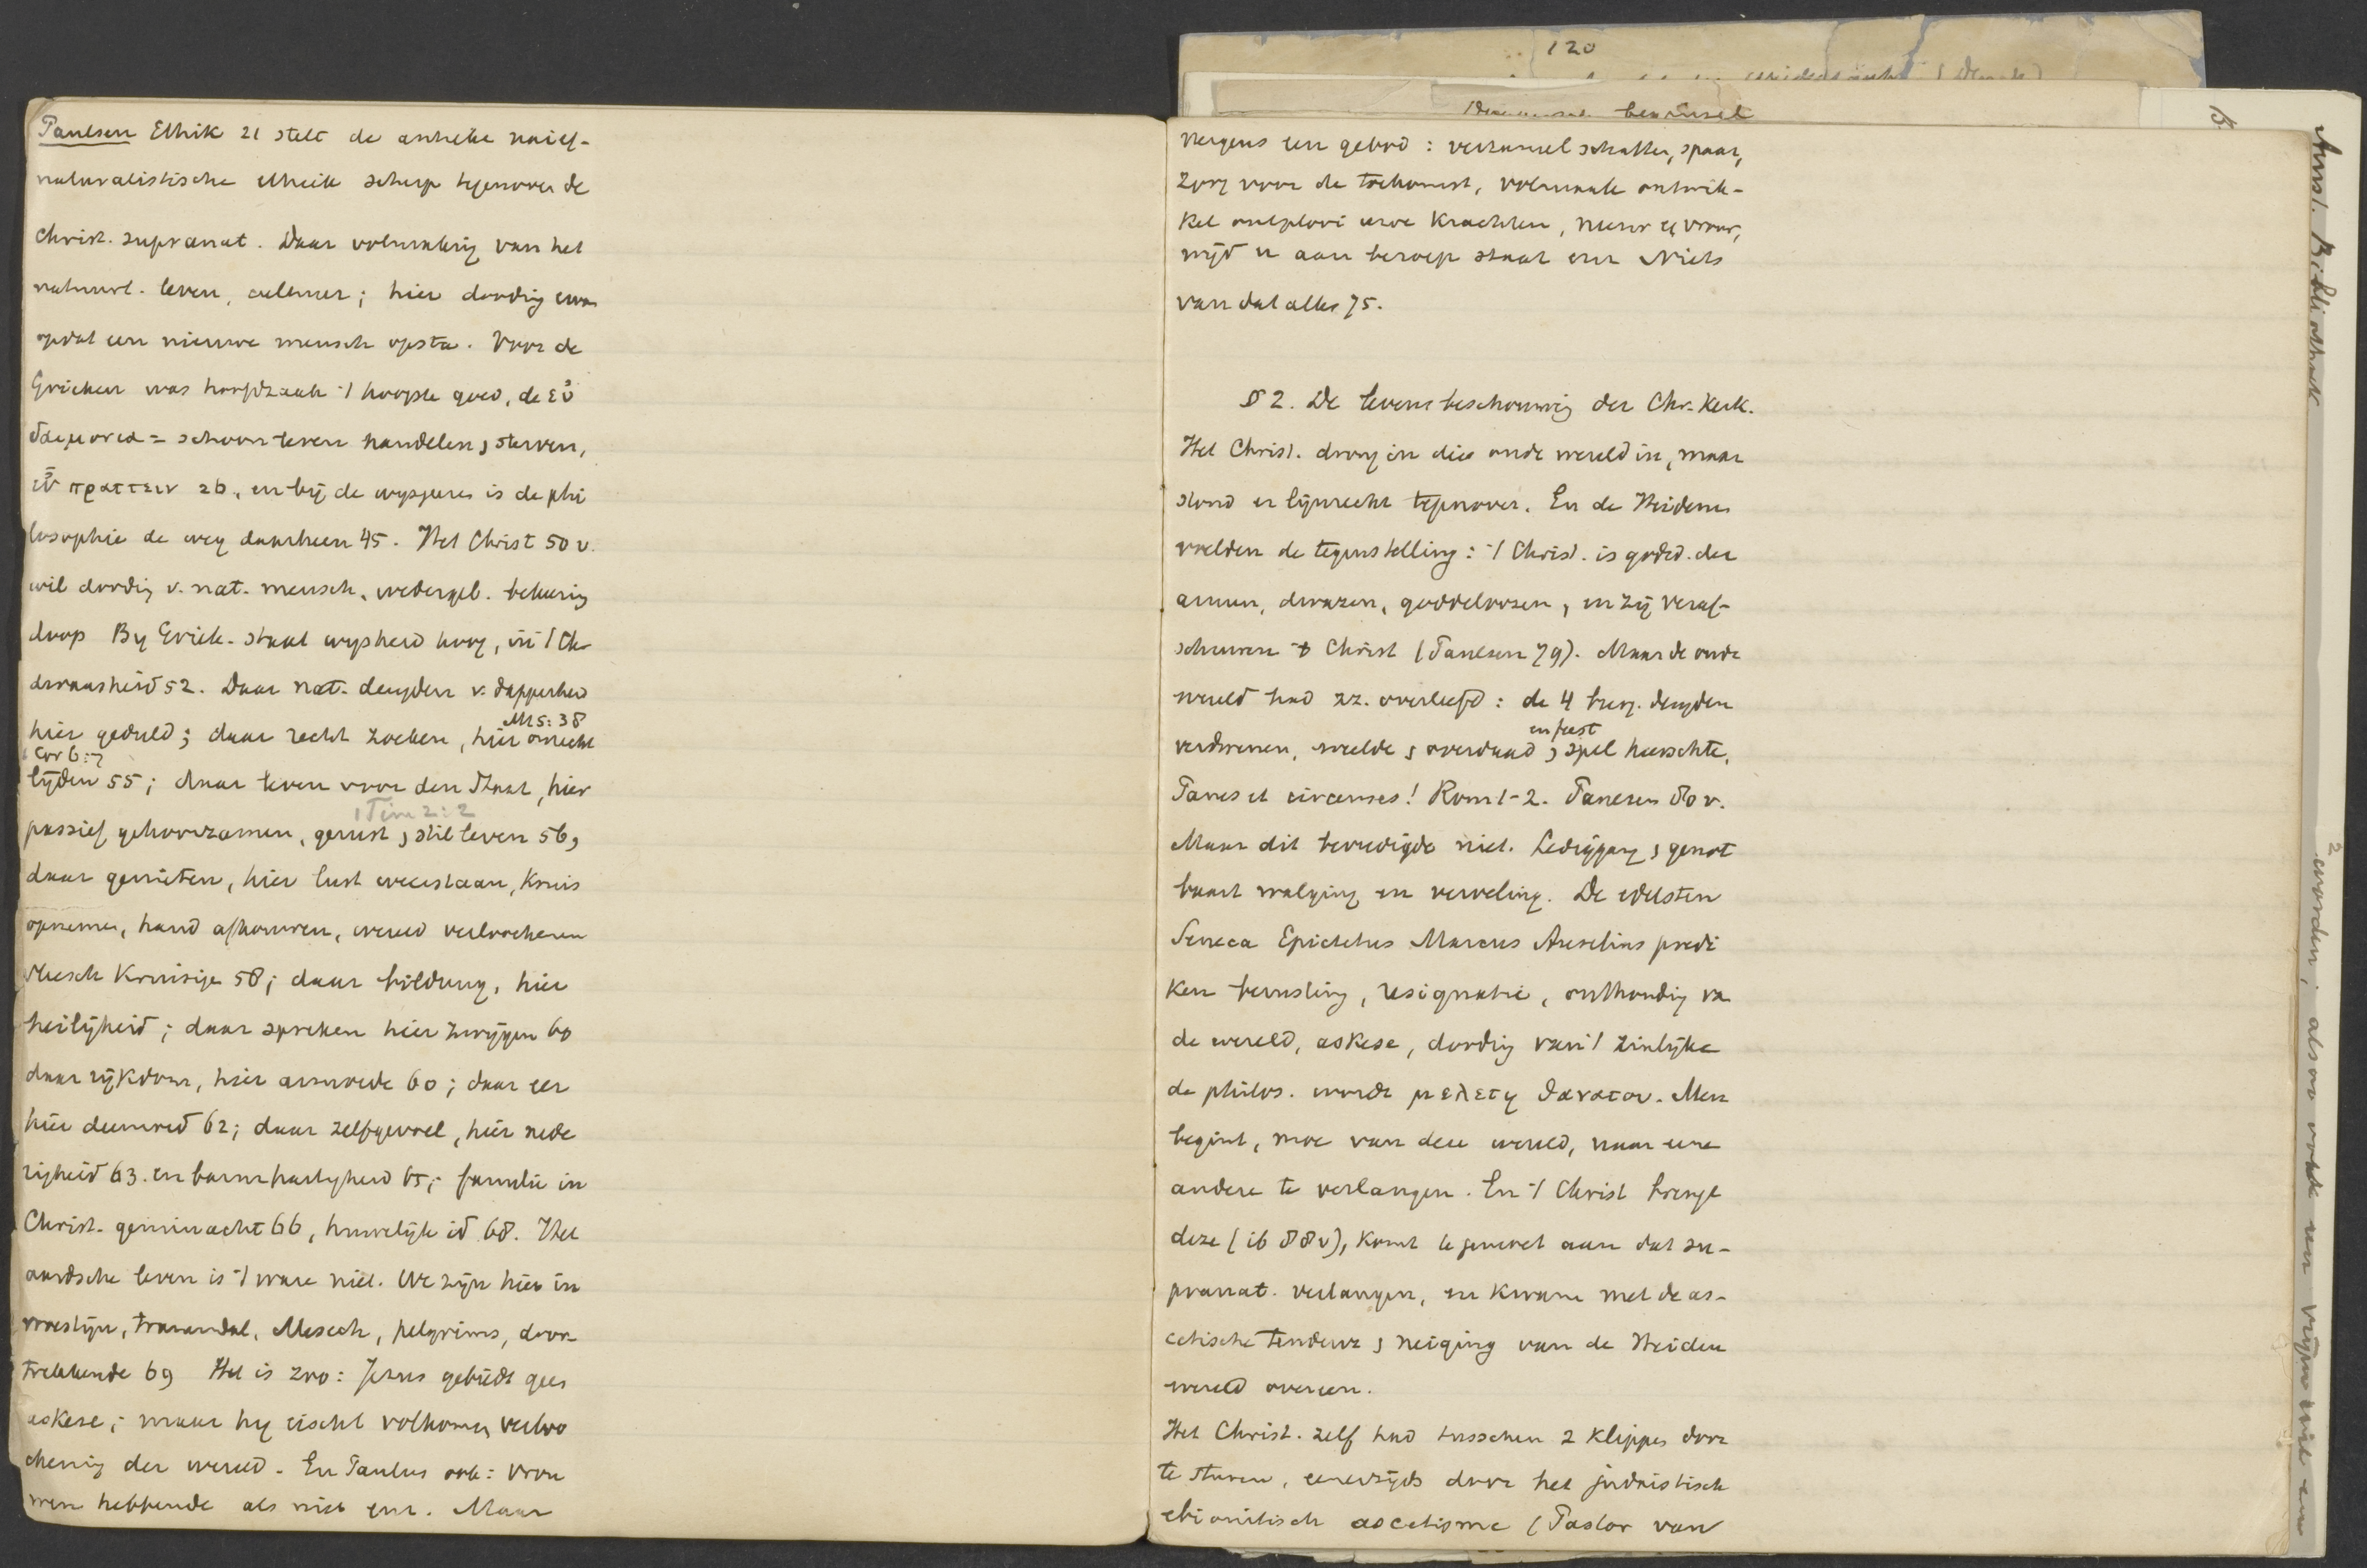 Paulsen Ethik 21 stelt de antieke naief-
naturalistische ethiek scherp tegenover de
Christ. supranat. Daar volmaking van het
natuurl. leven, cultuur; hier dooding ervan
opdat een nieuwe mensch opsta. Voor de
Grieken was hoofdzaak 't hoogste goed, de εὐ
δαιμονια = schoon leven handelen, sterven,
εὖ πραττειν 26, en bij de wijsgeeres is de phi
losophie de weg daarheen 45. Het Christ 50 v.
wil dooding v. nat. mensch, wedergeb. bekeering
doop By Griek. staat wysheid hoog, in 't Chr
dwaasheid 52. Daar nat. deugden v. dapperheid
Mt 5:38
hier geduld; daar recht zoeken, hier onrecht
1 Cor 6:7
lijden 55; daar leven voor den Staat, hier
1 Tim 2:2
passief gehoorzamen, gerust, stil leven 56,
daar genieten, hier lust weerstaan, Kruis
opnemen, hand afhouwen, wereld verloochenen
vleesch Kruisige 58; daar bildung, hier
heiligheid; daar spreken hier zwijgen 60
daar rijkdom, hier armoede 60; daar eer
hier deemoed 62; daar zelfgevoel, hier nede
righeid 63. en barmhartigheid 65; familie in
Christ. geminacht 66, huwelijk id 68. Het
aardsche leven is 't ware niet. We zijn hier in
woestijn, tranendal, Mesech, pelgrims, door
trekkende 69 Het is zoo: Jezus gebiedt geen
askese; maar hy eischt volkomen verloo
chening der wereld. En Paulus ook: vrou
wen hebbende als niet enz. Maar
120
nergens een gebod: verzamel schatten, spaar,
zorg voor de toekomst, volmaak ontwik-
kel ontplooi uwe Krachten, neem eene vrouw,
wijd u aan beroep staat enz Niets
van dat alles 75.
§ 2. De levensbeschouwing der Chr. Kerk.
Het Christ. drong in die oude wereld in, maar
stond er lijnrecht tegenover. En de Heidenen
voelden de tegenstelling: 't Christ. is godsd. der
armen, dwazen, goddeloozen, en zij veraf-
schuwen 't Christ (Paulsen 79). Maar de oude
wereld had zz. overleefd: de 4 burg. deugden
en feest
verdwenen, weelde, overdaad, spel heerschte,
Panes et circenses! Rom 1-2. Paulsen 80 v.
Maar dit bevredigde niet. Lediggang, genot
baart walging en verveling. De edelsten
Seneca Epictetus Marcus Aurelius predi
ken berusting, resignatie, onthouding van
de wereld, askese, dooding van 't zinlijke
de philos. wordt μελετη θανατου. Men
begint, moe van deze wereld, naar eene
andere te verlangen. En 't Christ brengt
deze (ib 88v), komt tegemoet aan dat su-
pranat. verlangen, en kwam met de as-
cetische tendenz, neiging van de Heiden
wereld overeen.
Het Christ. zelf had tusschen 2 Klippen door
te sturen, eenerzijds door het judaistisch
ebionitisch ascetisme (Pastor van